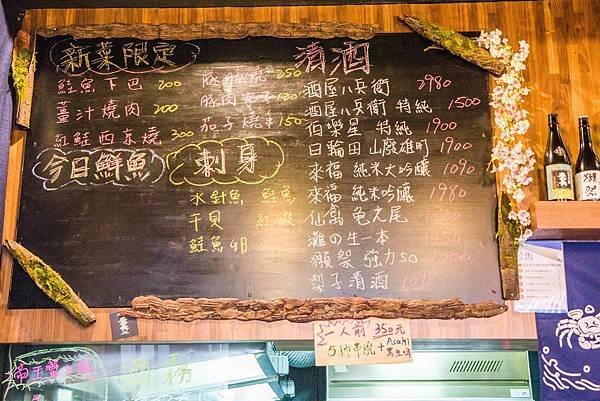 新菜限定
鮭魚下巴 200
薑汁燒肉 200
紅鮭西京燒 300
250
豚肉 120
茄子燒 150
今日鮮魚
刺身
水針魚 鮭魚
干貝
鮭魚卵
清酒
酒屋八兵衛 2980
酒屋八兵衛 特純 1500
伯樂星 特純 1900
日輪田 山廢雄町 1900
來福 純米大吟釀 1090
來福 純米吟釀 1980
仙禽 龜之尾
灘の生一本
獺祭 強力50
梨子清酒
一人前 350元
5種串燒+Asahi
獺祭
公告